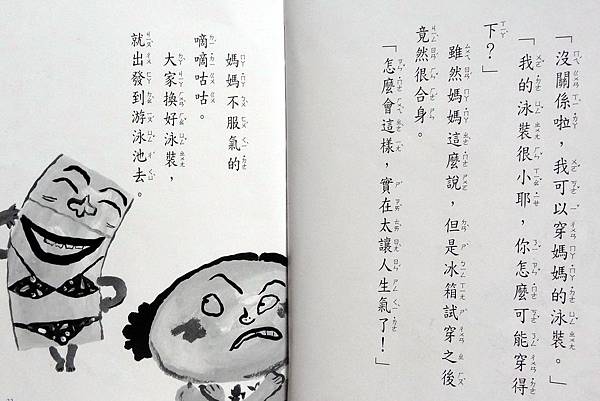 「沒關係啦，我可以穿媽媽的泳裝。」
「我的泳裝很小耶，你怎麼可能穿得
下？」
雖然媽媽這麼說，但是冰箱試穿之後
竟然很合身。
「怎麼會這樣，實在太讓人生氣了！」
媽媽不服氣的
嘀嘀咕咕。
大家換好泳裝，
就出發到游泳池去。